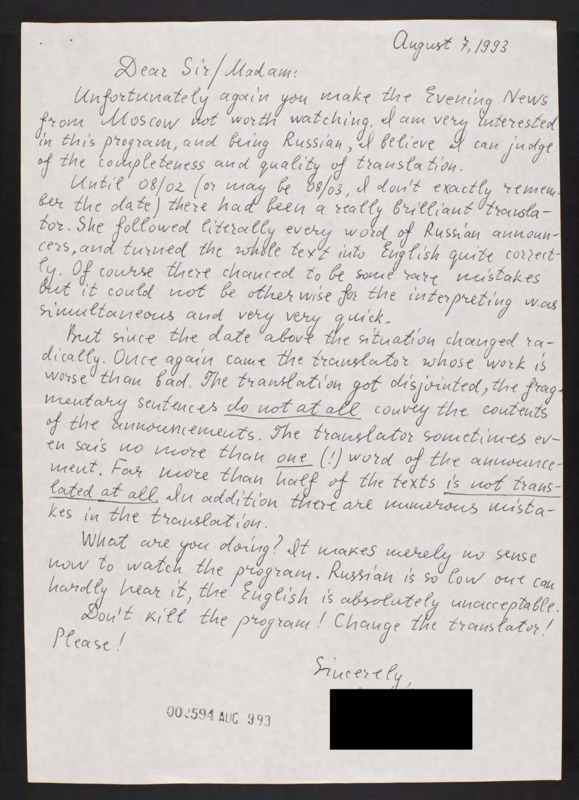 August 7, 1993
Dear Sir/Madam:
Unfortunately again you make the Evening News
from Moscow not worth watching. I am very interested
in this program, and being Russian, I believe I can judge
of the completeness and quality of translation.
Until 08/02 (or may be 08/03, I don't exactly remem-
ber the date) there had been a really brilliant transla-
tor. She followed literally every word of Russian announ-
cers, and turned the whole text into English quite correct-
ly. Of course there chanced to be some rare mistakes
but it could not be otherwise for the interpreting was
simultaneous and very very quick.
But since the date above the situation changed ra-
dically. Once again came the translator whose work is
worse than bad. The translation got disjointed, the frag-
mentary sentences do not at all convey the contents
of the announcements. The translator sometimes ev-
en sais no more than one (!) word of the announce-
ment. Far more than half of the texts is not trans-
lated at all. In addition there are numerous mista-
kes in the translation.
What are you doing? It makes merely no sense
now to watch the program. Russian is so low one can
hardly hear it, the English is absolutely unacceptable.
Don't kill the program! Change the translator!
Please!
Sincerely,
AUG 993